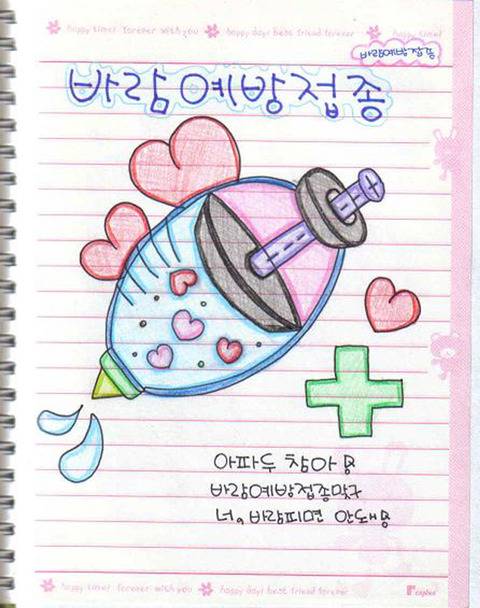 happy time! forever with you happy day! best friend forever happy time!
바람예방접종
바람예방접종
아파두 참아용
바람예방접종맞구
너。바람피면 안돼용
happy time! forever with you happy day! best friend forever